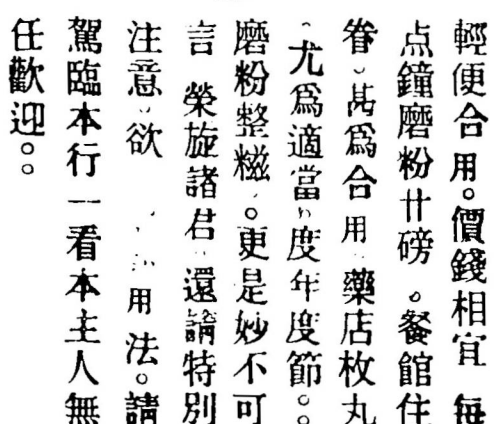 輕便合用。價錢相宜 每
点鐘磨粉廿磅 。餐館住
眷、甚爲合用 藥店枚丸
、尤爲適當、度年度節。。
磨粉整糍、。更是妙不可
言 榮旋諸君 還請特別
注意、欲 用法。請
駕臨本行一看本主人無
任歡迎。。